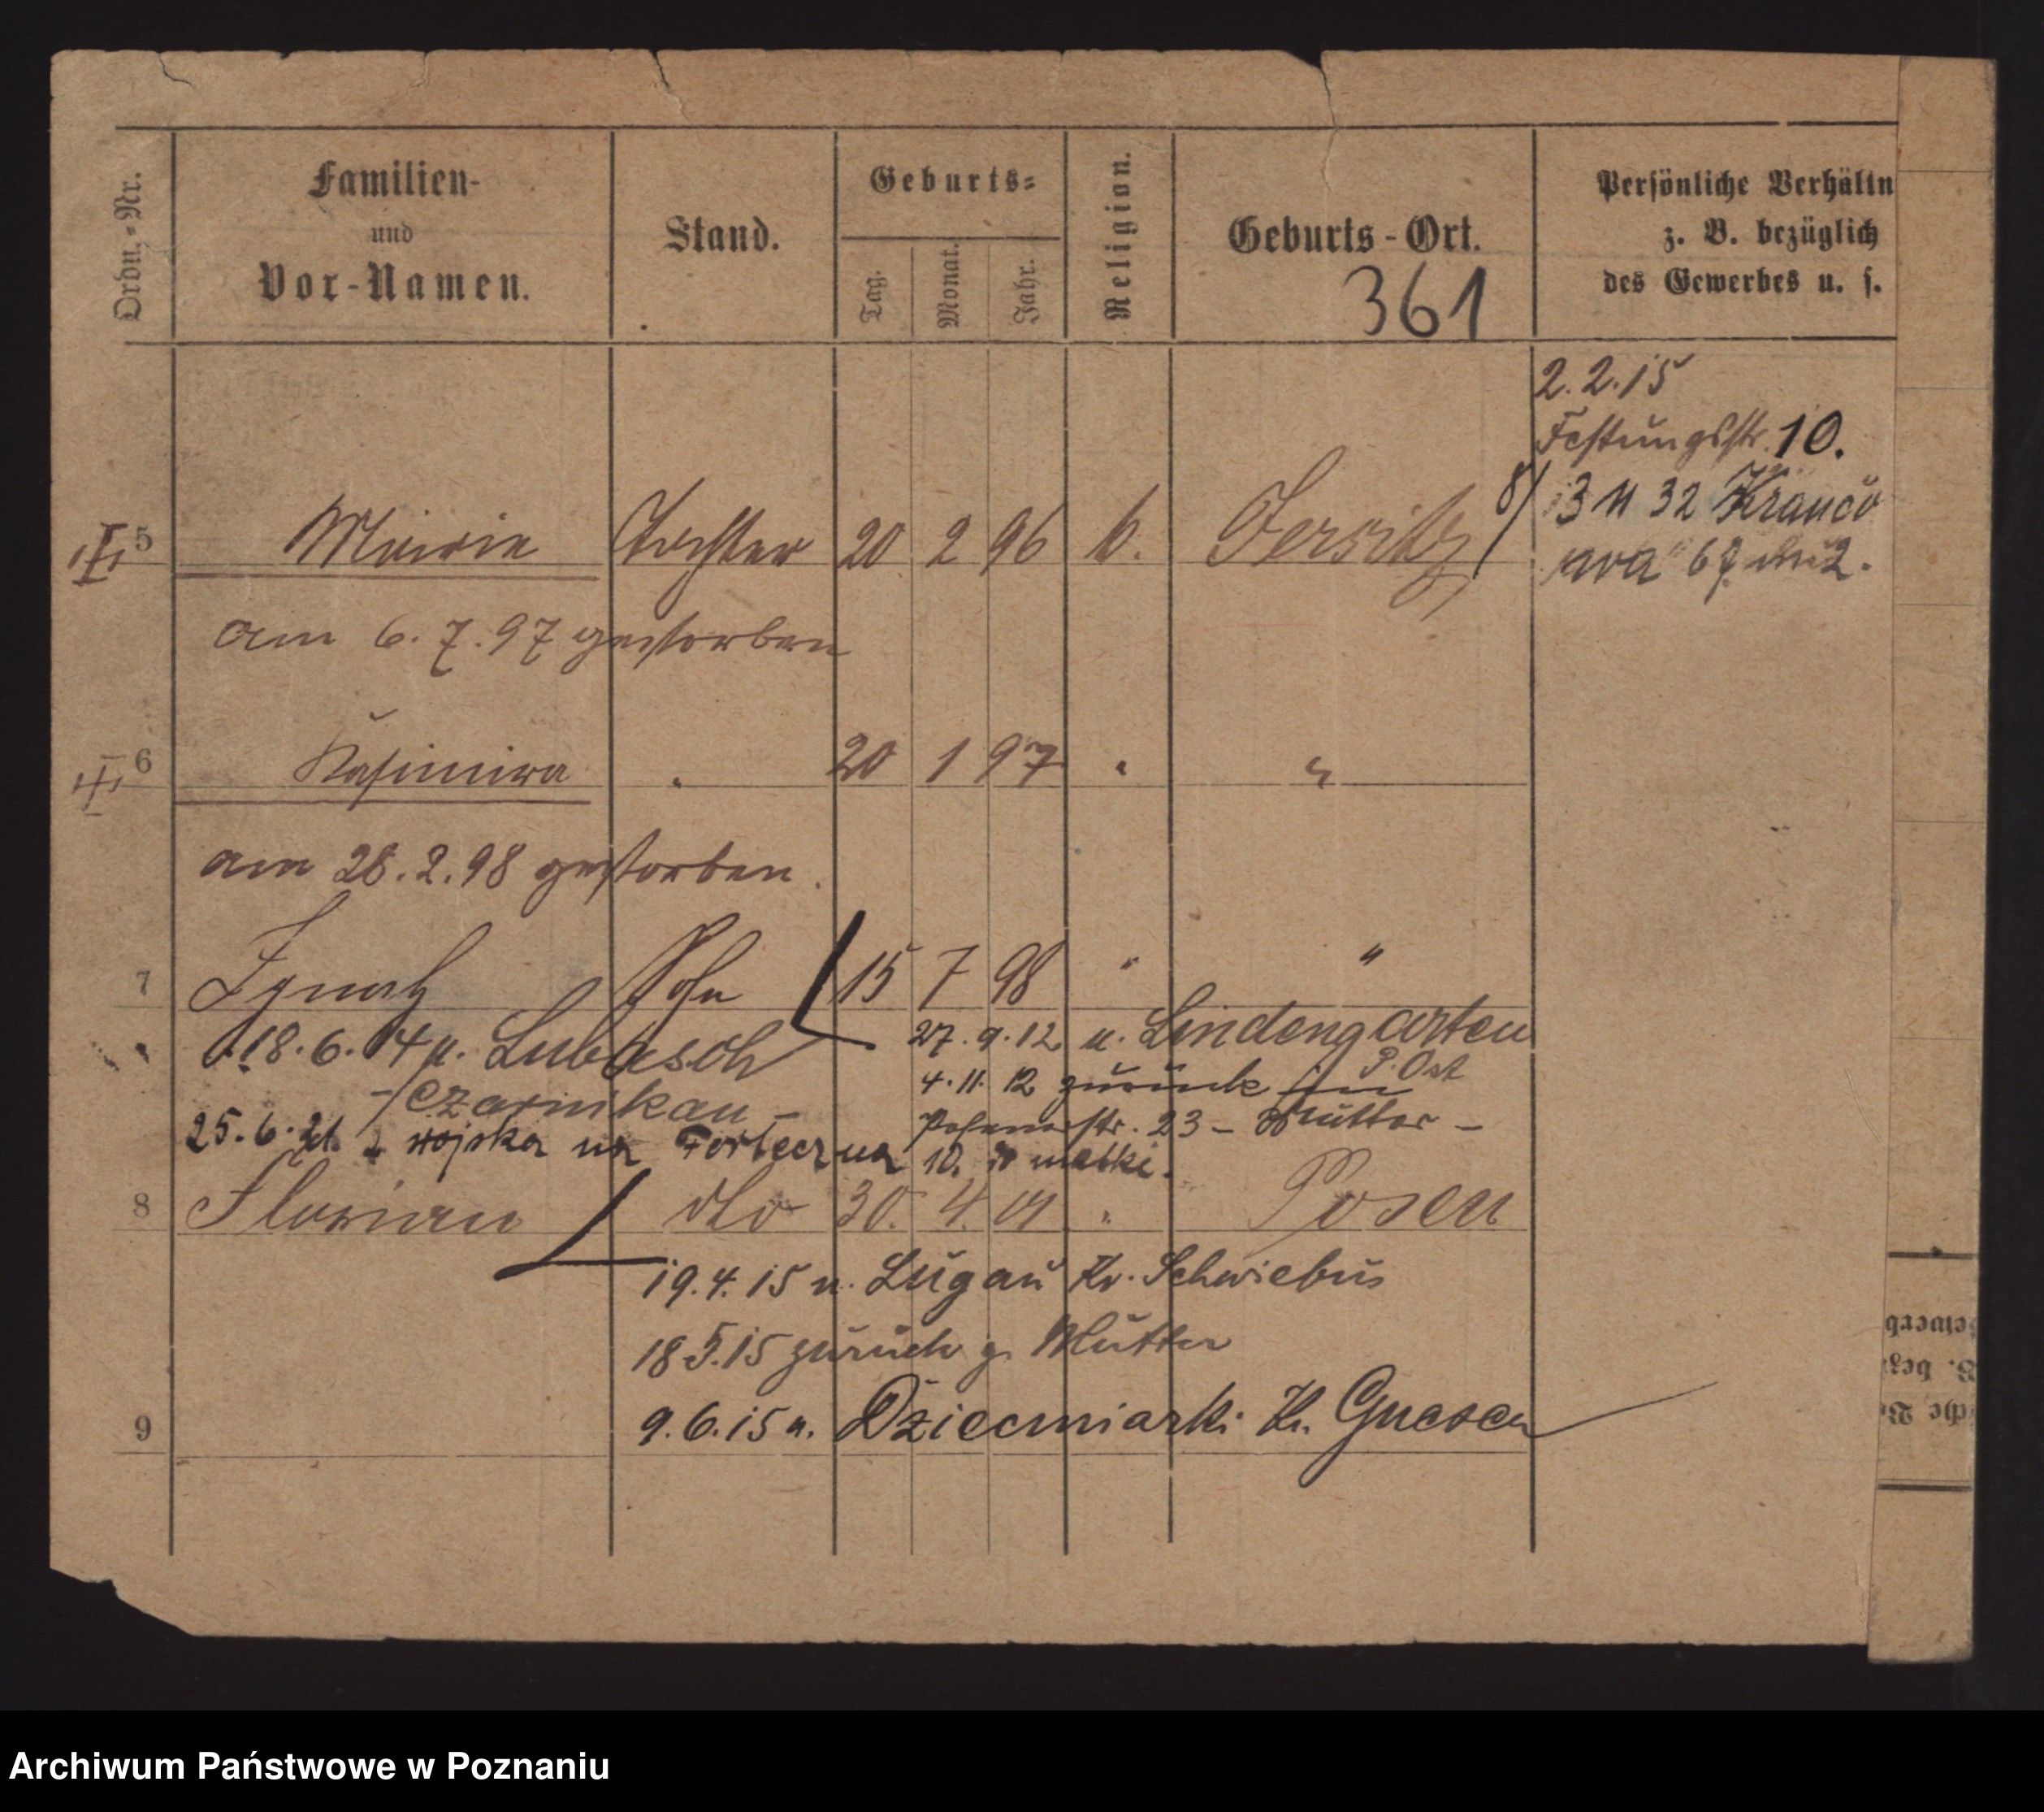 Ordn.-Nr.
Familien-
und
Vor-Namen.
Stand.
Geburts-
Tag.
Monat.
Jahr.
Religion.
Geburts-Ort.
361
Persönliche Verhältn
z. B. bezüglich
des Gewerbes u. s.
2.2.15
Festungsstr. 10.
5 Marie Tochter 20 2 96 k. Jersitz
8/ 13 11 32
67
am 6.7.97 gestorben
6 Kasimira " 20 1 97 " "
am 28.2.98 gestorben.
7 Ignatz Sohn 15 7 98 " "
18.6.14 n. Lubasch
27.9.12 n. Lindengarten
P. Ost
4.11.12 zurück
- Czarnikau -
Posenerstr. 23 - Mutter -
25.6. z wojska na Forteczna 10. matki.
8 Florian dto 30. 4. 01 " Posen
19.4.15 n. Lugau Kr. Schwiebus
18.5.15 zurück z. Mutter
9
9.6.15 n. Dziecmiarki Kr. Gnesen
ewerb
B. bez
iche V
Archiwum Państwowe w Poznaniu